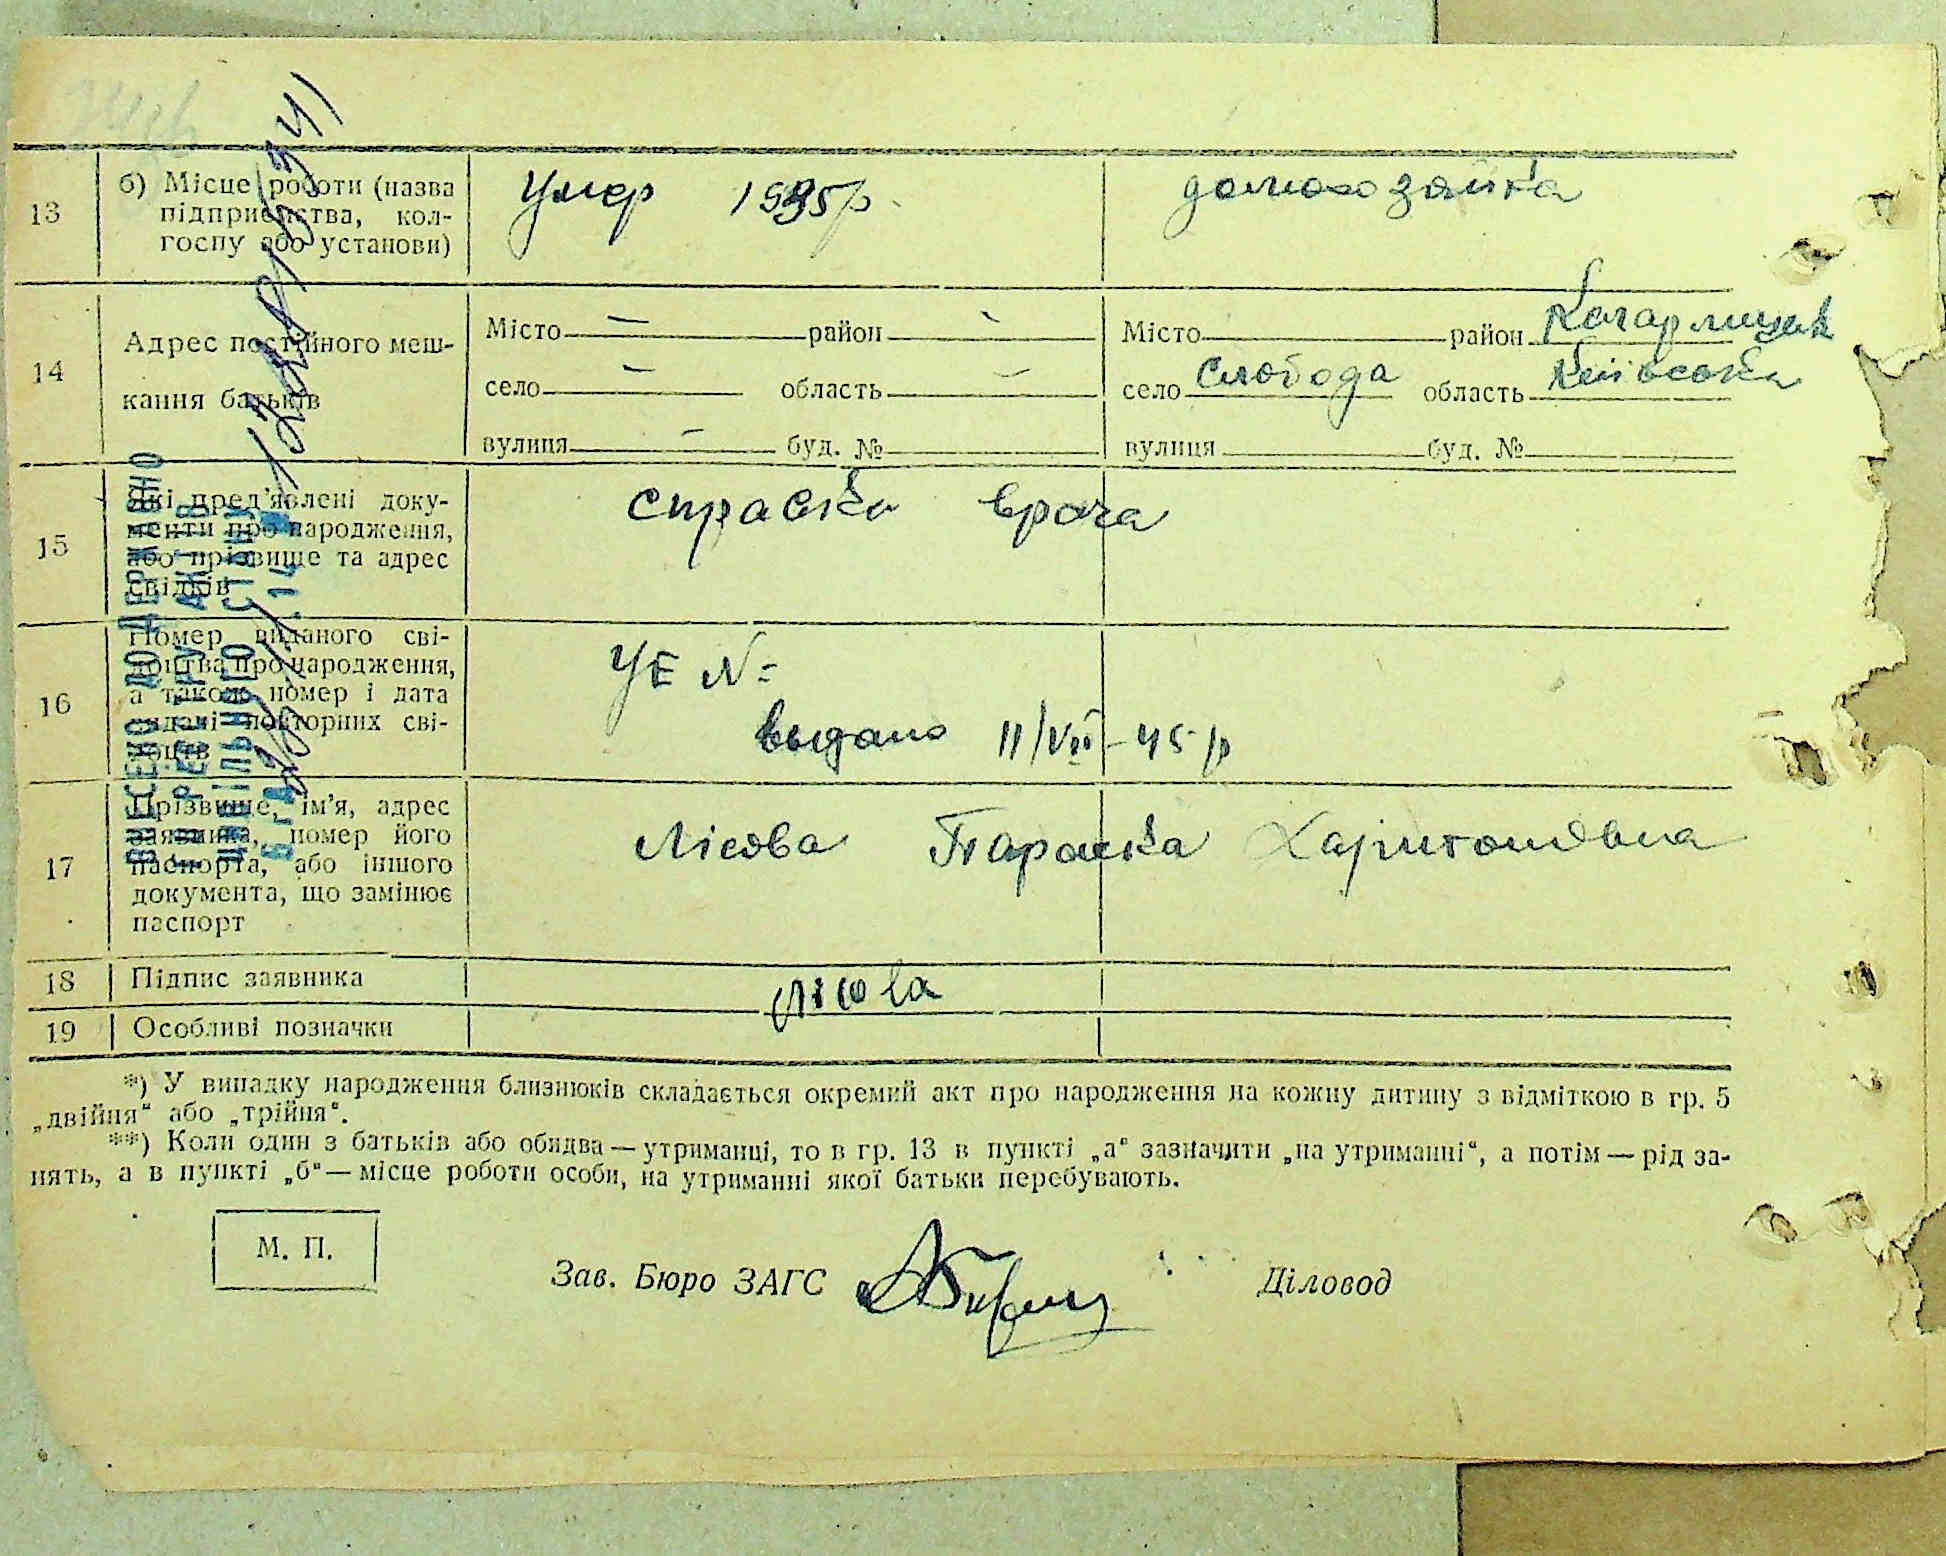 13 б) Місце роботи (назва підприємства, колгоспу або установи) Умер 1935р. домохозяйка
14 Адрес постійного мешкання батьків
Місто — район —
село — область —
вулиця — буд. №
Місто район Кагарлицьк
село Слобода область Київська
вулиця буд. №
15 Які пред'явлені документи про народження, або прізвище та адрес свідків
справка врача
16 Номер виданого свідоцтва про народження, а також номер і дата видачі повторних свідоцтв
УЕ №
выдано 11/VII-45 р
17 Прізвище, ім'я, адрес заявника, номер його паспорта, або іншого документа, що замінює паспорт
Лісова Параска Харитоновна
18 Підпис заявника Лісова
19 Особливі позначки
ВНЕСЕНО ДО ДЕРЖАВНО
ГО РЕЄСТРУ АКТІВ
ЦИВІЛЬНОГО СТАНУ
*) У випадку народження близнюків складається окремий акт про народження на кожну дитину з відміткою в гр. 5
„двійня“ або „трійня“.
**) Коли один з батьків або обидва — утриманці, то в гр. 13 в пункті „а“ зазначити „на утриманні“, а потім — рід за-
нять, а в пункті „б“ — місце роботи особи, на утриманні якої батьки перебувають.
М. П.
Зав. Бюро ЗАГС
Діловод